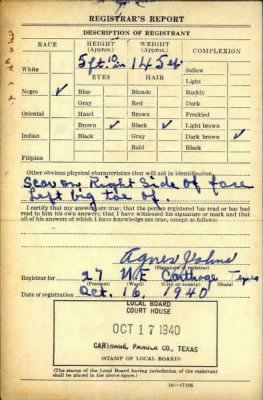 REGISTRAR'S REPORT
DESCRIPTION OF REGISTRANT
RACE HEIGHT (Approx.) WEIGHT (Approx.) COMPLEXION
5 ft 10 in 145 lb
White EYES HAIR Sallow
Light
Negro ✓ Blue Blonde Ruddy
Gray Red Dark
Oriental Hazel Brown Freckled
Brown ✓ Black ✓ Light brown
Indian Black Gray Dark brown ✓
Bald Black
Filipino
Other obvious physical characteristics that will aid in identification
Scar on Right Side of face
Left big toe of.
I certify that my answers are true; that the person registered has read or has had
read to him his own answers; that I have witnessed his signature or mark and that
all of his answers of which I have knowledge are true, except as follows:
Agnes Johns
(Signature of registrar)
Registrar for 27 Carthage Texas
(Precinct) (Ward) (City or county) (State)
Date of registration Oct. 16, 1940
LOCAL BOARD
COURT HOUSE
OCT 17 1940
CARTHAGE, PANOLA CO., TEXAS
(STAMP OF LOCAL BOARD)
(The stamp of the Local Board having jurisdiction of the registrant
shall be placed in the above space.)